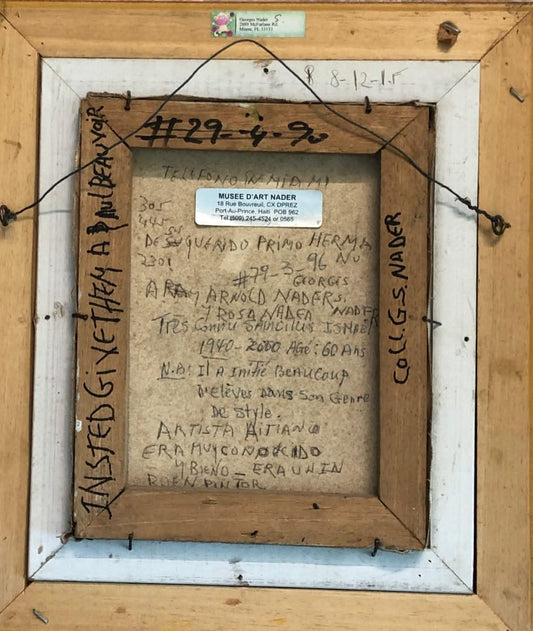 Georges Nader 5
2689 McFarlane Rd.
Miami, FL 33133
8-12-15
#29-4-90
TELEFONO IN MIAMI
MUSEE D'ART NADER
18 Rue Bouvreuil, CX DPREZ
Port-Au-Prince, Haiti POB 962
Tel (509) 245-4524 or 0565
305
445
DE SU QUERIDO PRIMO HERMA
NO
2301
#79-3-96
GEORGES
NADER
A RAY ARNOLD NADERS.
Y ROSA NADER
TRÈS CONNU
1940-2000 AGé: 60 ANS
N.B: IL A INITIé BEAUCOUP
D'ELèVES DANS SON GENRE
DE STYLE.
ARTISTA AITIANO
ERA MUY CONOCIDO
Y BIENO_ ERA UN IN
BUEN PINTOR
INSTED GIVE THEM A PAUL BEAUVOIR
COLL. G.S. NADER